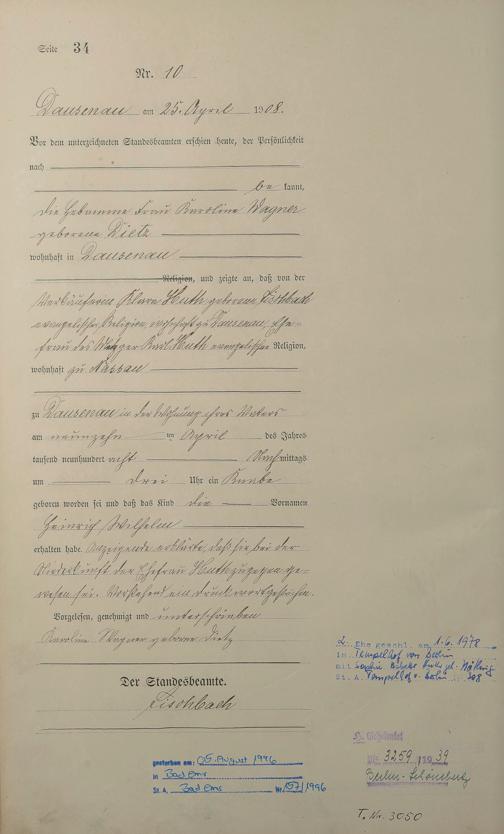 Seite 34
Nr. 10
Dausenau am 25. April 1908.
Vor dem unterzeichneten Standesbeamten erschien heute, der Persönlichkeit
nach
be kannt,
die Hebamme Frau Karoline Wagner
geborene Dietz
wohnhaft in Dausenau
Religion, und zeigte an, daß von der
Verkäuferin Klara Huth geborene Fischbach
evangelischer Religion, wohnhaft zu Dausenau, Ehe-
frau des Metzger Karl Huth evangelischer Religion,
wohnhaft zu Nassau
zu Dausenau in der Wohnung ihres Vaters
am neunzehn ten April des Jahres
tausend neunhundert acht Nachmittags
um drei Uhr ein Knabe
geboren worden sei und daß das Kind die Vornamen
Heinrich Wilhelm
erhalten habe. Anzeigende erklärte, daß sie bei der
Niederkunft der Ehefrau Huth zugegen ge-
wesen sei. Vorstehend ein Druckwort gestrichen.
Vorgelesen, genehmigt und unterschrieben
Karoline Wagner geborene Dietz
Der Standesbeamte.
Fischbach
2. Ehe geschl. am 1.6.1978
in Tempelhof von Berlin
mit Sophie
St. A. Tempelhof v. Berlin
gestorben am: 05. August 1996
in Bad Ems
St. A. Bad Ems Nr. 157/1996
Nr. 3259 1939
Berlin-Schöneberg
T. Nr. 3050